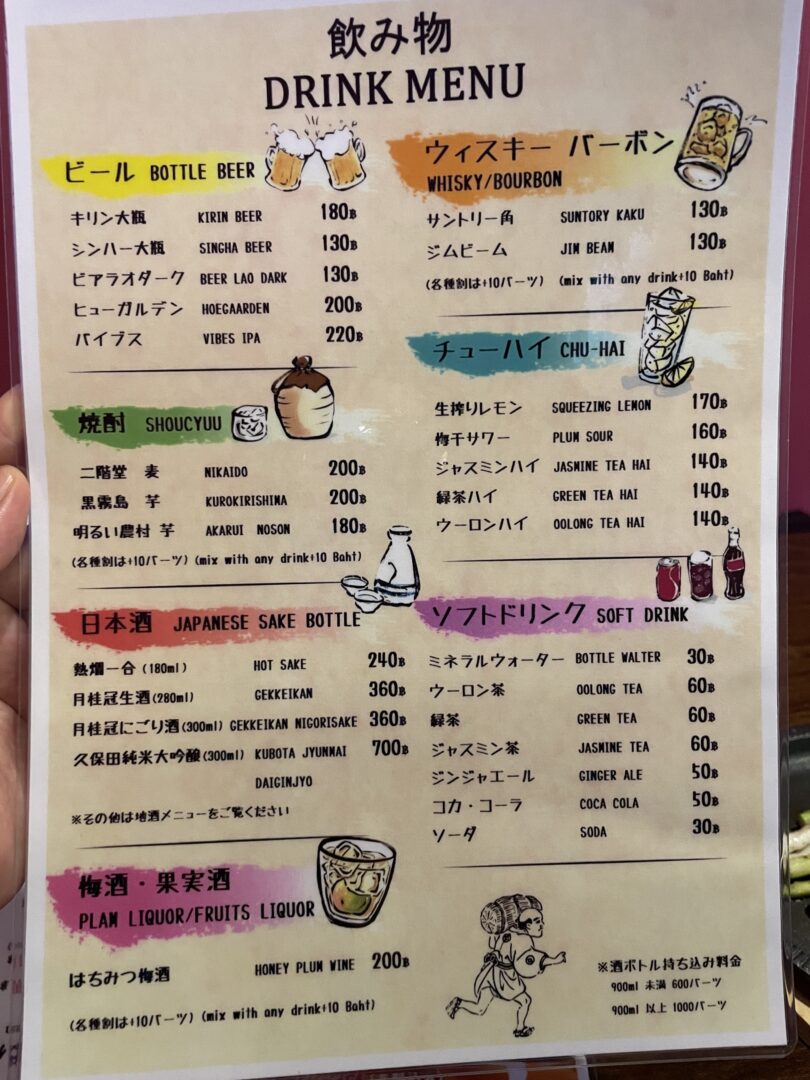 飲み物
DRINK MENU
ビール BOTTLE BEER
キリン大瓶 KIRIN BEER 180฿
シンハー大瓶 SINGHA BEER 130฿
ビアラオダーク BEER LAO DARK 130฿
ヒューガルデン HOEGAARDEN 200฿
バイブス VIBES IPA 220฿
焼酎 SHOUCYUU
二階堂 麦 NIKAIDO 200฿
黒霧島 芋 KUROKIRISHIMA 200฿
明るい農村 芋 AKARUI NOSON 180฿
(名種割は+10バーツ) (mix with any drink+10 Baht)
日本酒 JAPANESE SAKE BOTTLE
熱燗一合 (180ml) HOT SAKE 240฿
月桂冠生酒(280ml) GEKKEIKAN 360฿
月桂冠にごり酒(300ml) GEKKEIKAN NIGORISAKE 360฿
久保田純米大吟醸(300ml) KUBOTA JYUNMAI 700฿
DAIGINJYO
※その他は地酒メニューをご覧ください
梅酒・果実酒
PLAM LIQUOR/FRUITS LIQUOR
はちみつ梅酒 HONEY PLUM WINE 200฿
(名種割は+10バーツ) (mix with any drink+10 Baht)
ウィスキー バーボン
WHISKY/BOURBON
サントリー角 SUNTORY KAKU 130฿
ジムビーム JIM BEAM 130฿
(名種割は+10バーツ) (mix with any drink+10 Baht)
チューハイ CHU-HAI
生搾りレモン SQUEEZING LEMON 170฿
梅干サワー PLUM SOUR 160฿
ジャスミンハイ JASMINE TEA HAI 140฿
緑茶ハイ GREEN TEA HAI 140฿
ウーロンハイ OOLONG TEA HAI 140฿
ソフトドリンク SOFT DRINK
ミネラルウォーター BOTTLE WALTER 30฿
ウーロン茶 OOLONG TEA 60฿
緑茶 GREEN TEA 60฿
ジャスミン茶 JASMINE TEA 60฿
ジンジャエール GINGER ALE 50฿
コカ・コーラ COCA COLA 50฿
ソーダ SODA 30฿
※酒ボトル持ち込み料金
900ml 未満 600バーツ
900ml 以上 1000バーツ